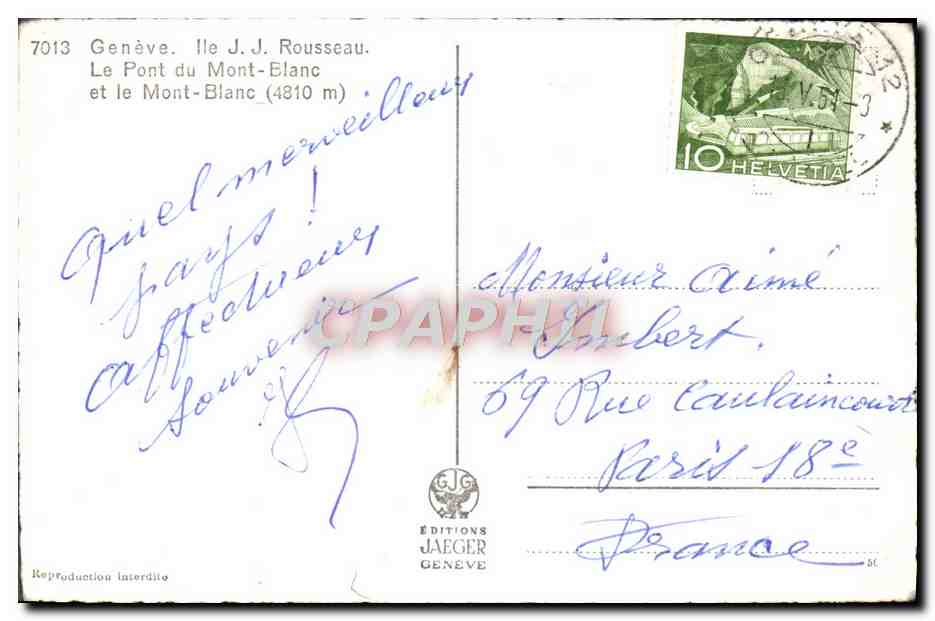 7013 Genève. Ile J. J. Rousseau.
Le Pont du Mont-Blanc
et le Mont-Blanc (4810 m)
Quel merveilleux
pays !
Affectueux
souvenir
10 HELVETIA
V.51-3
12
Monsieur Aimé
Imbert.
69 Rue Caulaincourt
Paris 18è
France
CPAPHIL
GJG
ÉDITIONS
JAEGER
GENÈVE
Reproduction interdite
50